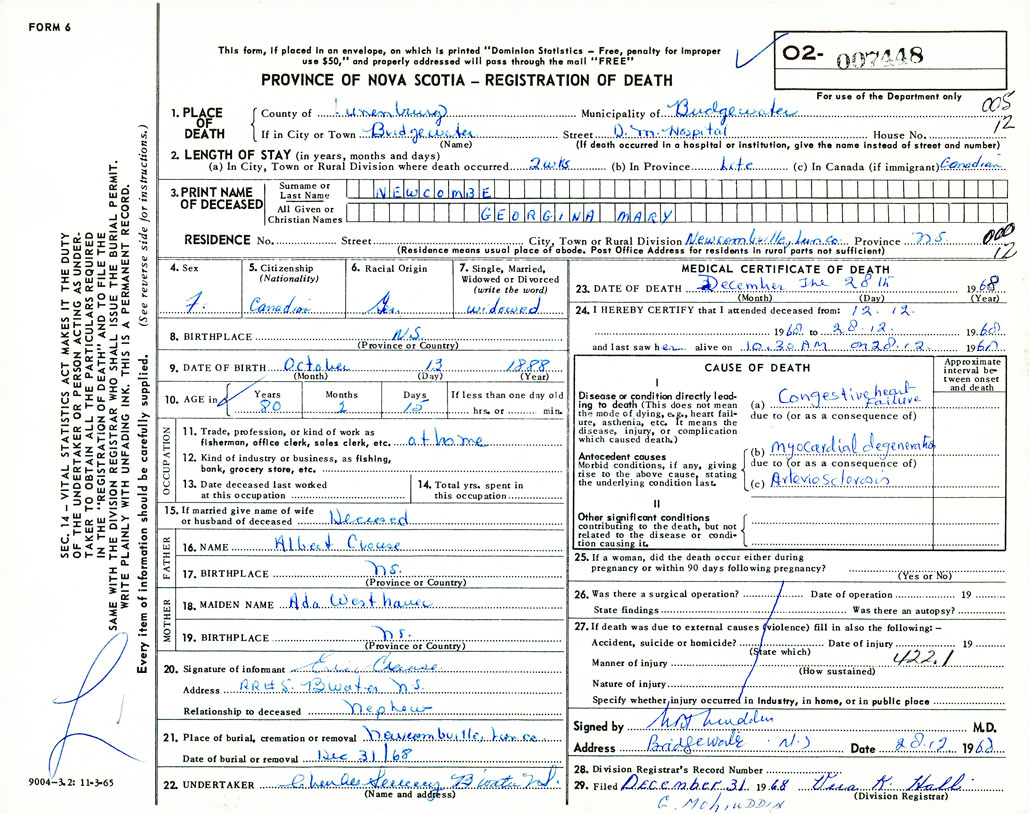 FORM 6
This form, if placed in an envelope, on which is printed "Dominion Statistics – Free, penalty for improper
use $50," and properly addressed will pass through the mail "FREE"
PROVINCE OF NOVA SCOTIA – REGISTRATION OF DEATH
O2- 007448
For use of the Department only
005
12
1. PLACE OF DEATH
County of Lunenburg Municipality of Bridgewater
If in City or Town Bridgewater Street D. M. Hospital House No.
(Name) (If death occurred in a hospital or institution, give the name instead of street and number)
2. LENGTH OF STAY (in years, months and days)
(a) In City, Town or Rural Division where death occurred 2 wks (b) In Province Life (c) In Canada (if immigrant) Canadian
3. PRINT NAME OF DECEASED
Surname or Last Name NEWCOMBE
All Given or Christian Names GEORGINA MARY
RESIDENCE No. Street City, Town or Rural Division Newcombville, Lun co. Province N.S.
000
12
(Residence means usual place of abode. Post Office Address for residents in rural parts not sufficient)
4. Sex F.
5. Citizenship (Nationality) Canadian
6. Racial Origin Ger.
7. Single, Married, Widowed or Divorced (write the word) widowed
8. BIRTHPLACE N.S.
(Province or Country)
9. DATE OF BIRTH October 13 1888
(Month) (Day) (Year)
10. AGE in Years 80 Months 2 Days 15 If less than one day old hrs. or min.
OCCUPATION
11. Trade, profession, or kind of work as
fisherman, office clerk, sales clerk, etc. at home
12. Kind of industry or business, as fishing,
bank, grocery store, etc.
13. Date deceased last worked
at this occupation
14. Total yrs. spent in
this occupation
15. If married give name of wife
or husband of deceased Deceased
FATHER
16. NAME Albert Crouse
17. BIRTHPLACE N.S.
(Province or Country)
MOTHER
18. MAIDEN NAME Ada Westhaver
19. BIRTHPLACE N.S.
(Province or Country)
20. Signature of informant Eric
Address RR#5 B'water N.S.
Relationship to deceased Nephew
21. Place of burial, cremation or removal Newcombville, Lun co
Date of burial or removal Dec 31/68
22. UNDERTAKER
(Name and address)
MEDICAL CERTIFICATE OF DEATH
23. DATE OF DEATH December The 28th 1968
(Month) (Day) (Year)
24. I HEREBY CERTIFY that I attended deceased from: 12.12.
1968 to 28.12. 1968
and last saw her alive on 10.30 AM on 28.12. 1968
CAUSE OF DEATH
Approximate interval between onset and death
I
Disease or condition directly leading
to death (This does not mean
the mode of dying, e.g., heart failure,
asthenia, etc. It means the
disease, injury, or complication
which caused death.)
(a) Congestive heart Failure
due to (or as a consequence of)
Antecedent causes
Morbid conditions, if any, giving
rise to the above cause, stating
the underlying condition last.
(b) myocardial degeneration
due to (or as a consequence of)
(c) Arteriosclerosis
II
Other significant conditions
contributing to the death, but not
related to the disease or condition
causing it.
25. If a woman, did the death occur either during
pregnancy or within 90 days following pregnancy?
(Yes or No)
26. Was there a surgical operation? Date of operation 19
State findings Was there an autopsy?
27. If death was due to external causes (violence) fill in also the following: –
Accident, suicide or homicide? Date of injury 19
(State which)
422.1
Manner of injury
(How sustained)
Nature of injury
Specify whether injury occurred in industry, in home, or in public place
Signed by M.D.
Address Bridgewater N.S Date 28.12 1968
28. Division Registrar's Record Number
29. Filed DECEMBER 31 1968 Vera K Hall
(Division Registrar)
G. MOHIUDDIN
SEC. 14 – VITAL STATISTICS ACT MAKES IT THE DUTY
OF THE UNDERTAKER OR PERSON ACTING AS UNDERTAKER
TO OBTAIN ALL THE PARTICULARS REQUIRED
IN THE "REGISTRATION OF DEATH" AND TO FILE THE
SAME WITH THE DIVISION REGISTRAR WHO SHALL ISSUE THE BURIAL PERMIT.
WRITE PLAINLY WITH UNFADING INK. THIS IS A PERMANENT RECORD.
Every item of information should be carefully supplied. (See reverse side for instructions.)
9004-3.2: 11-3-65